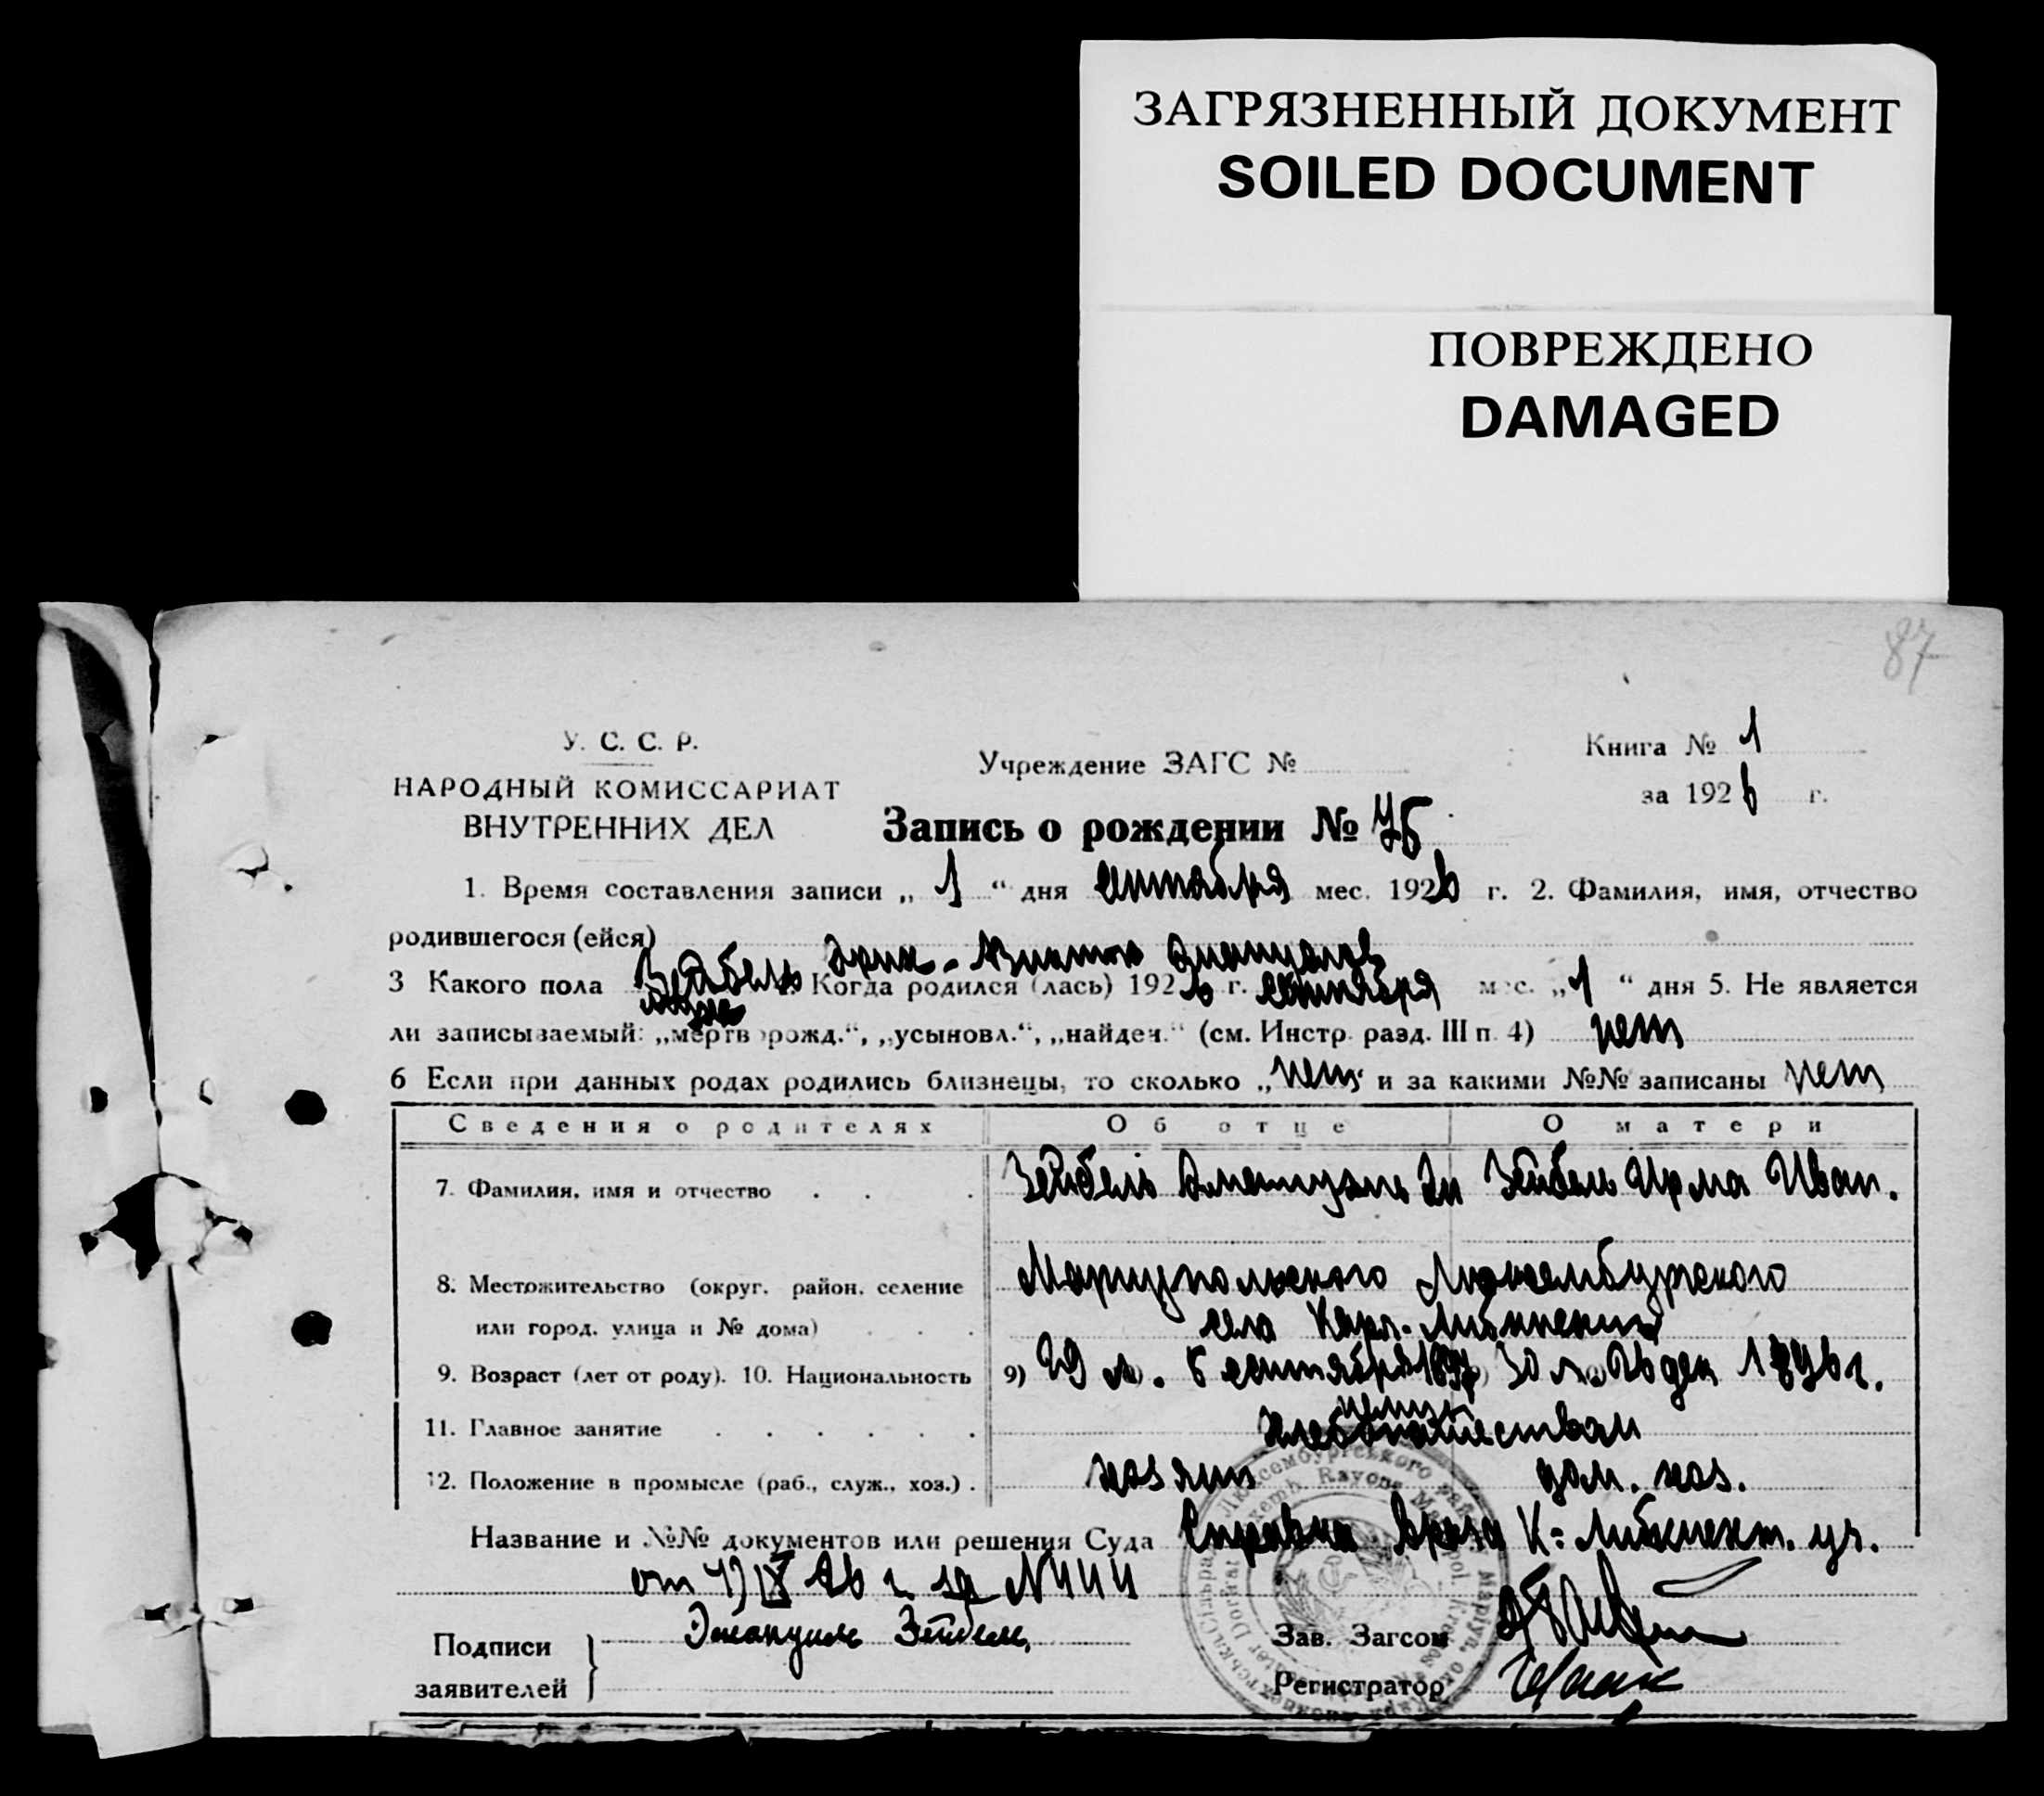 ЗАГРЯЗНЕННЫЙ ДОКУМЕНТ
SOILED DOCUMENT
ПОВРЕЖДЕНО
DAMAGED
87
У. С. С. Р.
НАРОДНЫЙ КОМИССАРИАТ
ВНУТРЕННИХ ДЕЛ
Учреждение ЗАГС №
Книга № 1
за 1926 г.
Запись о рождении № 75
1. Время составления записи „ 1 “ дня сентября мес. 1926 г. 2. Фамилия, имя, отчество
родившегося (ейся)
Зейбель Эрик - Виктор
3 Какого пола Когда родился (лась) 1926 г. сентября мес. „1“ дня 5. Не является
ли записываемый: „мертворожд.“, „усыновл.“, „найден.“ (см. Инстр. разд. III п. 4) нет
6 Если при данных родах родились близнецы, то сколько „нет“ и за какими №№ записаны нет
Сведения о родителях Об отце О матери
7. Фамилия, имя и отчество Зейбель Зейбель Ирма Иван.
8. Местожительство (округ, район, селение Мариупольского Люксембургского
или город, улица и № дома) село Карл-Либкнехт
9. Возраст (лет от роду). 10. Национальность 9) 29 л. 5 сентября 1897 30 л. 26 дек 1896 г.
немцы
11. Главное занятие хлебопашеством
12. Положение в промысле (раб., служ., хоз.) хозяин дом. хоз.
Название и №№ документов или решения Суда Справка врача К-Либкнехт. уч.
от IX 26 г за №444
Подписи
заявителей
Эмануил Зейбель
Зав. Загсом
Регистратор